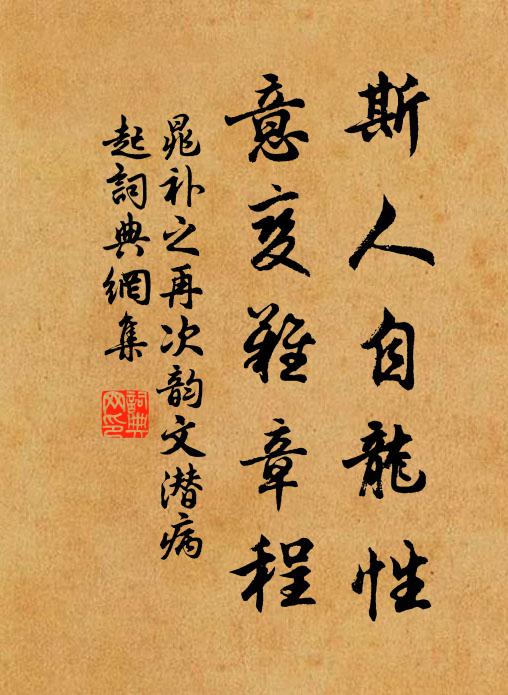 斯人自龍性
意变難章程
晁补之再次韵文潜病
起詞典網集
詞典
网印